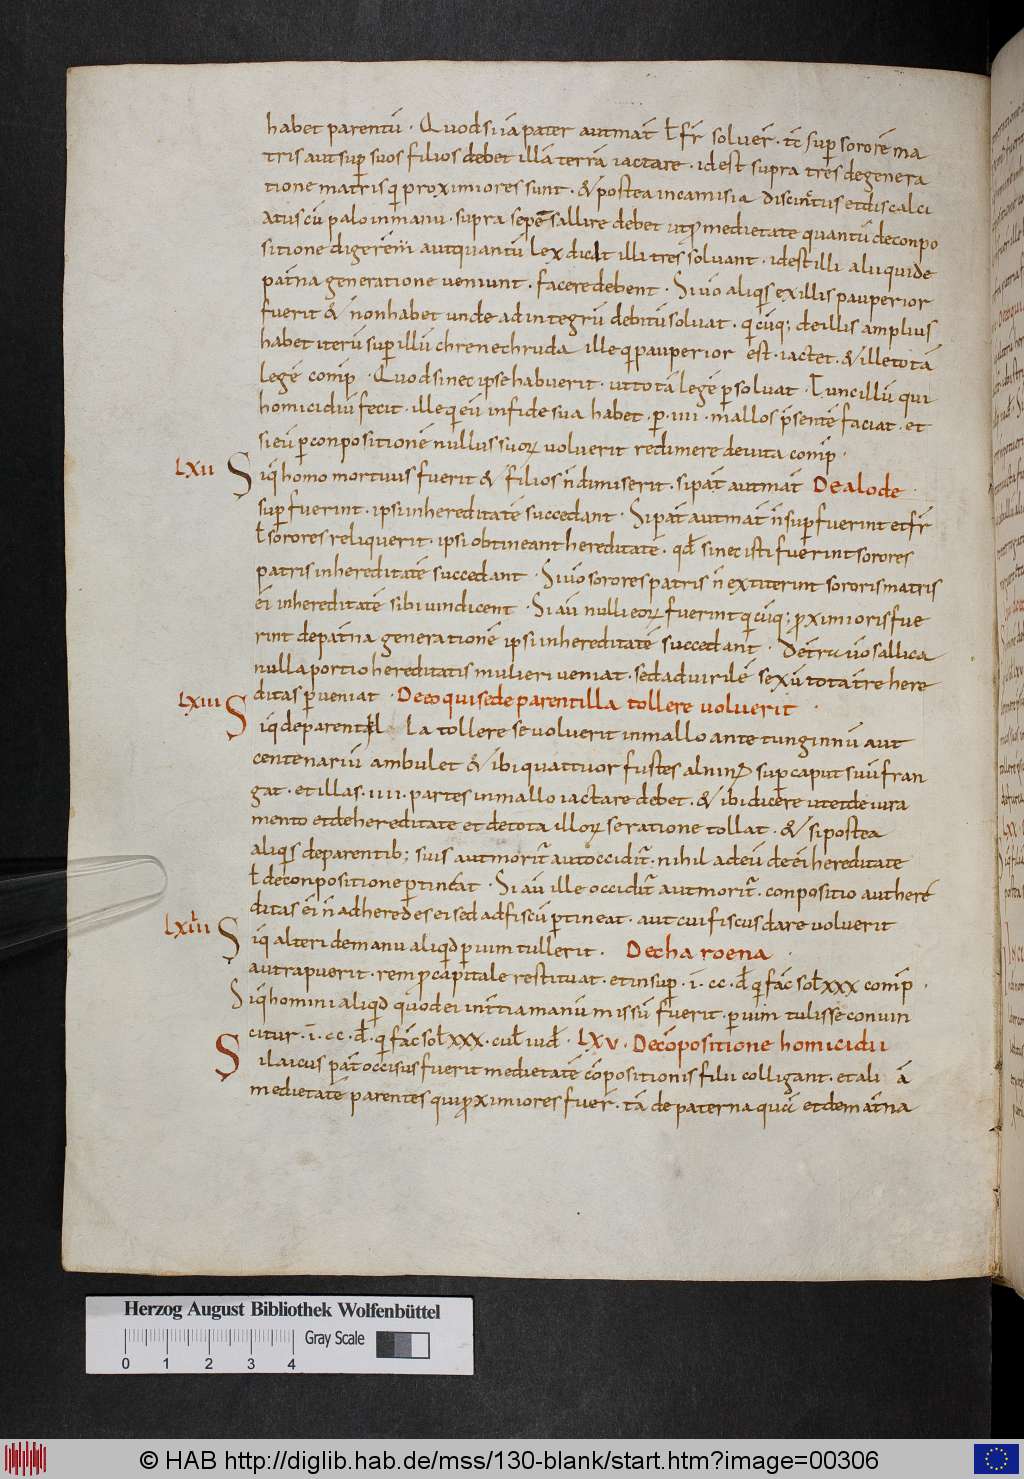 habet parentū · Quodsi iā pater aut mat̄ ł fr̄ soluer̄ · tc̄ sup sororē ma
tris aut sup suos filios debet illā terrā iactare · id est supra tres de genera
tione matris qi proximiores sunt · & postea in camisia discinctus et discalci
atus cū palo in manu · supra sepē sallire debet ut medietate quantū de conpo
sitione digerēm aut quantū lex dicat illi tres soluant · id est illi alii qui de
pat̄na generatione ueniunt · facere debent · Si uō aliqis ex illis pauperior
fuerit & non habet unde ad integrū debitū soluat · qicūq; de illis amplius
habet iterū sup illū chrenechruda ille qi pauperior est · iactet · & ille totā
legē comp̄ · Quod si nec ipse habuerit · ut totā legē psoluat · Tunc illū qui
homicidiū fecit · ille qi eū in fide sua habet · p · iiii · mallos p̄sentē faciat · et
si eū p conpositionē nullus suoꝝ uoluerit redimere de uita comp̄ ·
LXII Siq̄ homo mortuus fuerit & filios n̄ dimiserit · si pat̄ aut mat̄ De alode ·
sup fuerint · ipsi in hereditatē succedant · Si pat̄ aut mat̄ n̄ sup fuerint et fr̄
ł sorores reliquerit · ipsi obtineant hereditatē · qd̄ si nec isti fuerint sorores
patris in hereditatē succedant · Si uō sorores patris n̄ extiterint sororis matris
ei in hereditatē sibi uindicent · Si aū nulli eoꝝ fuerint qicūq; proximioris fue
rint de pat̄na generationē ipsi in hereditatē succedant · De tr̄a uō sallica
nulla portio hereditatis mulieri ueniat · sed ad uirilē sexū tota t̄re here
ditas pueniat · De eo qui se de parentilla tollere uoluerit ·
LXIII Siq̄ de parentilla tollere se uoluerit in mallo ante tunginnū aut
centenariū ambulet & ibi quattuor fustes alninos sup caput suū fran
gat · et illas · iiii · partes in mallo iactare debet · & ibi dicere ut et de iura
mento et de hereditate et de tota illoꝝ se ratione tollat · & si postea
aliqis de parentib; suis aut morit̄ aut occidit̄ · nihil ad eū de ei hereditate
ł de conpositione ptineat · Si aū ille occidit̄ aut morit̄ · conpositio aut here
ditas ei n̄ ad heredes ei sed ad fiscū ptineat · aut cui fiscus dare uoluerit
LXIIII Siq̄ alteri de manu aliqid p uim tullerit · De charoena ·
aut rapuerit · rem p capitale restituat · et insup · ī · cc · d̄ qi fac̄ sol xxx comp̄ ·
Siq̄ homini aliqid quod ei int̄tia manū missū fuerit · p uim tulisse conuin
citur · ī · cc · d̄ · qi fac̄ sol xxx · cul iud̄ · LXV · De cōpositione homicidii
Si laicus pat̄ occisus fuerit medietatē cōpositionis filii colligant · et aliā
medietatē parentes qui proximiores fuer̄ · tā de paterna quā et de mat̄na
Herzog August Bibliothek Wolfenbüttel
Gray Scale
0 1 2 3 4
© HAB http://diglib.hab.de/mss/130-blank/start.htm?image=00306